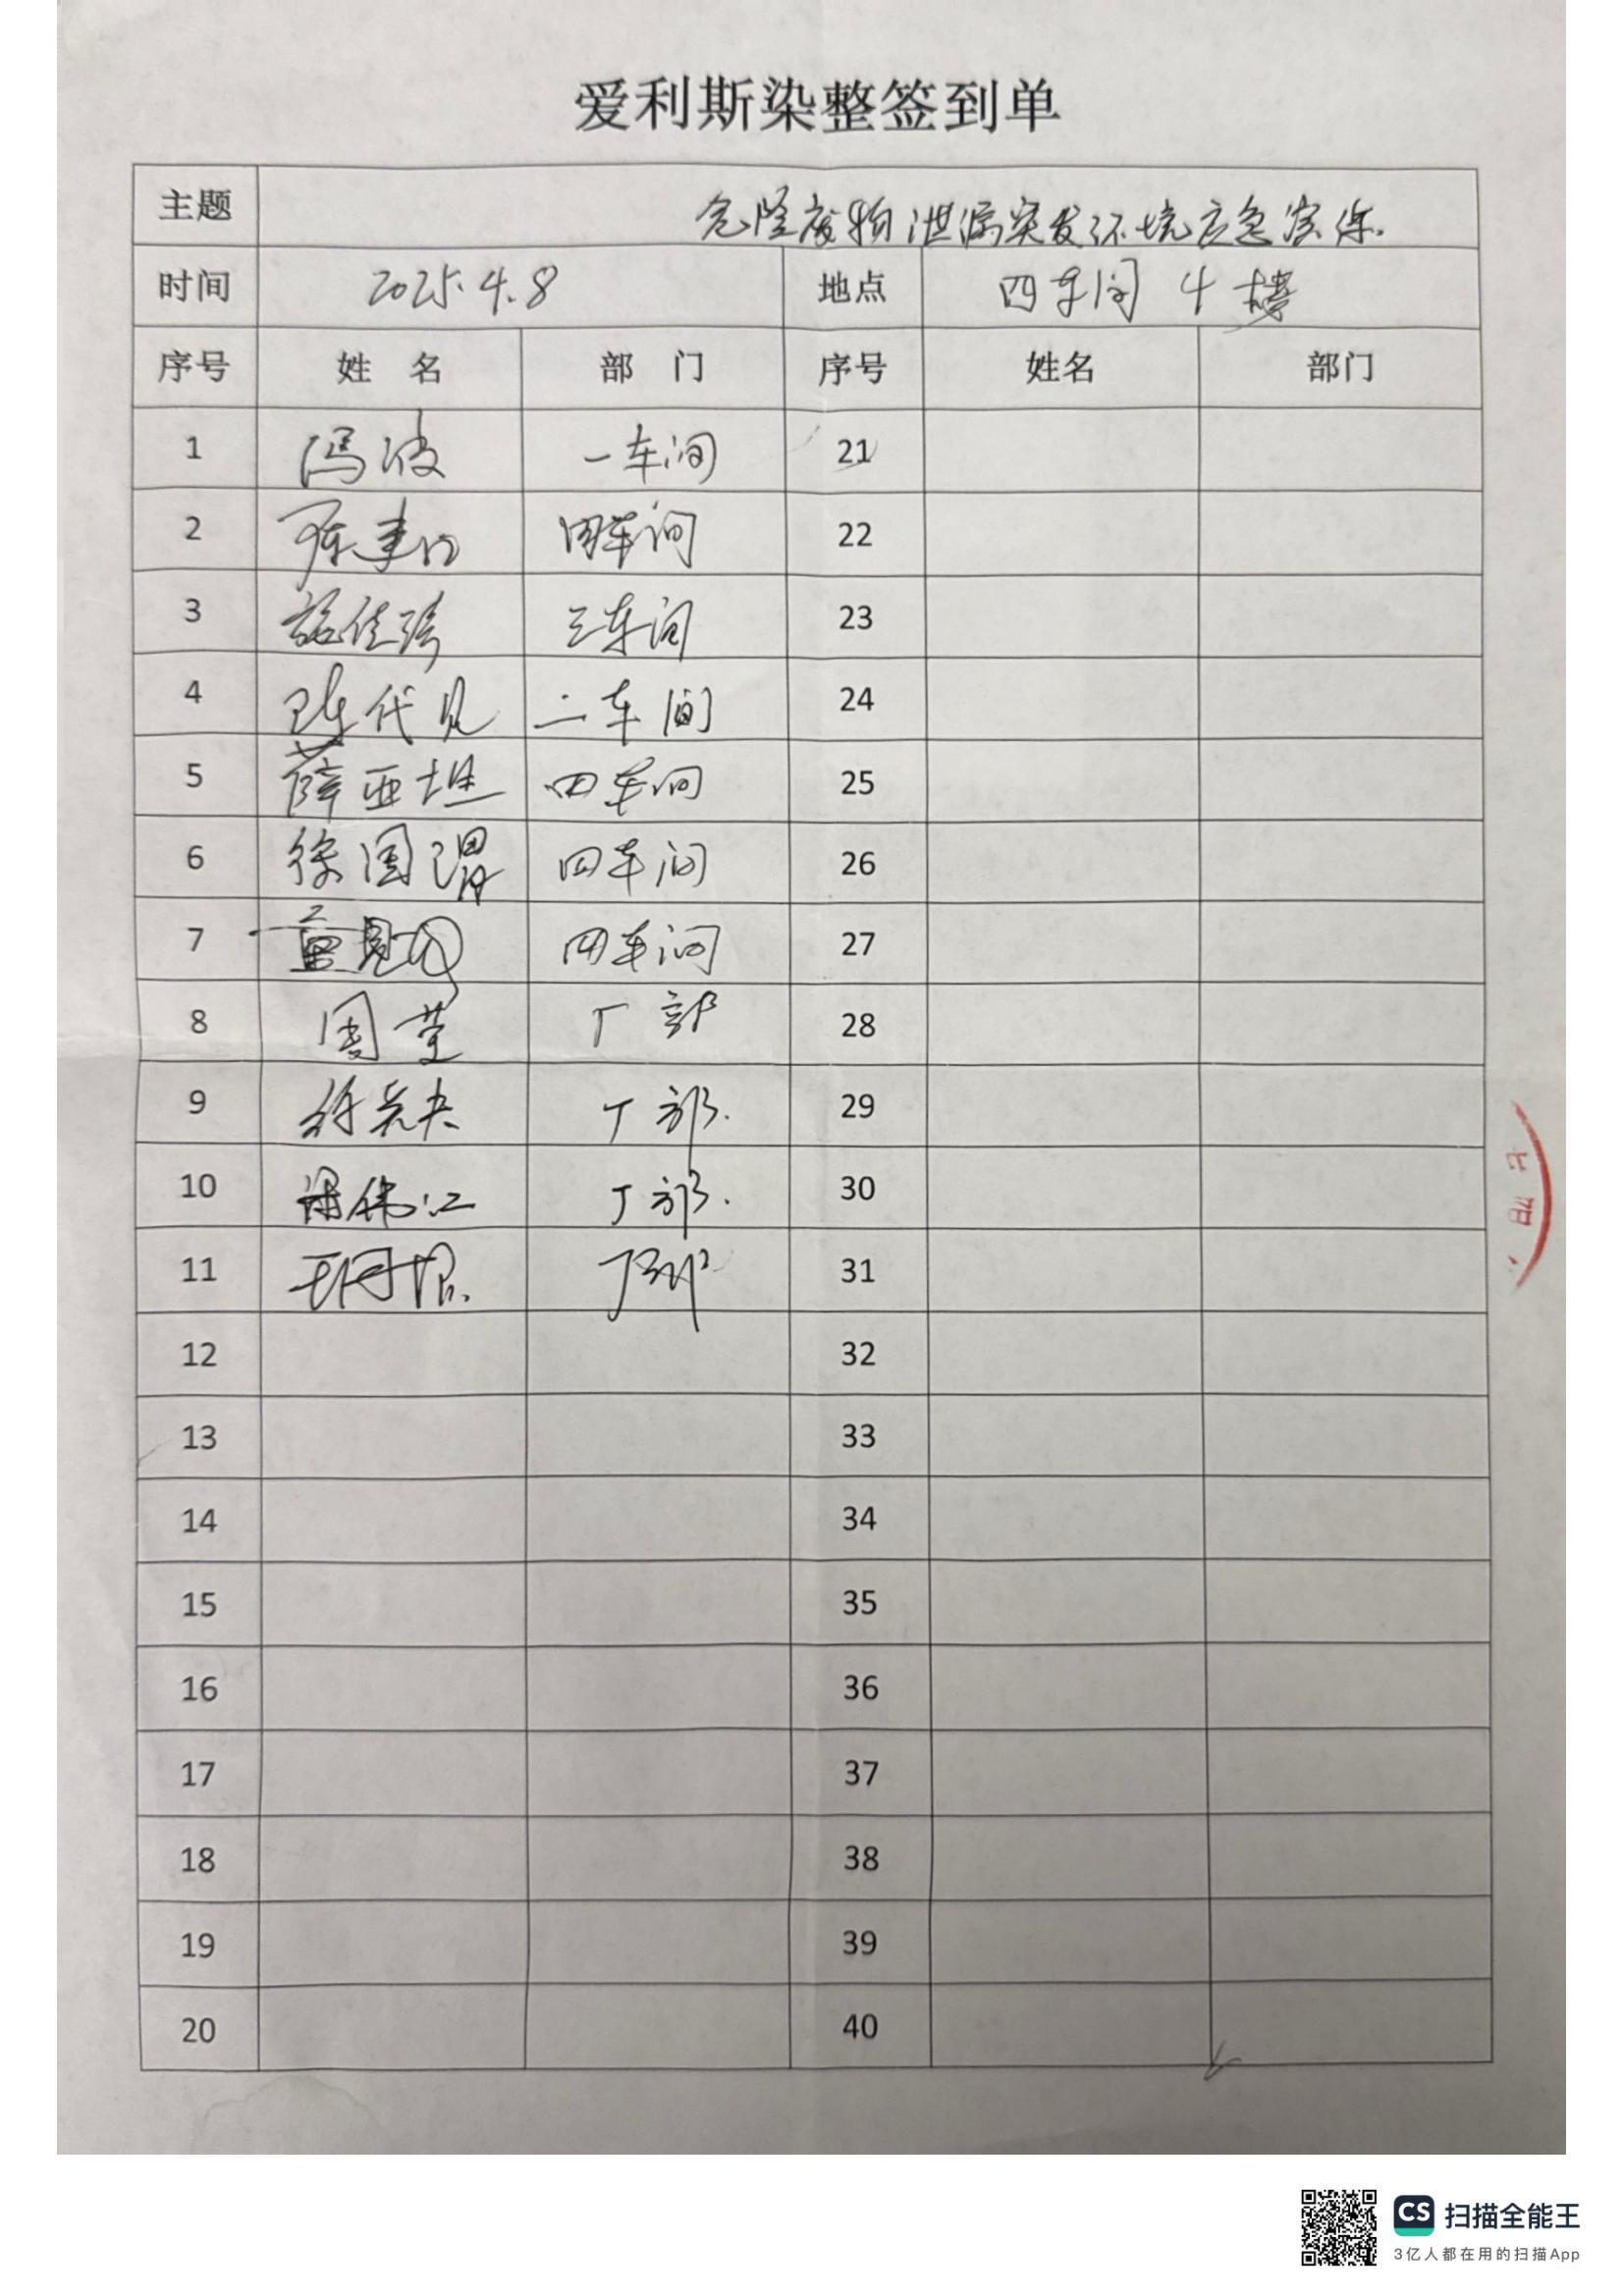 爱利斯染整签到单
主题 危险废物泄漏突发环境应急演练.
时间 2025.4.8 地点 四车间 4楼
序号 姓 名 部 门 序号 姓名 部门
1 冯波 一车间 21
2 四车间 22
3 施佳 三车间 23
4 陈代见 二车间 24
5 薛亚坦 四车间 25
6 徐国渭 四车间 26
7 四车间 27
8 周莹 厂部 28
9 厂部. 29
10 伟江 厂部. 30
11 厂部 31
12 32
13 33
14 34
15 35
16 36
17 37
18 38
19 39
20 40
CS 扫描全能王
3亿人都在用的扫描App